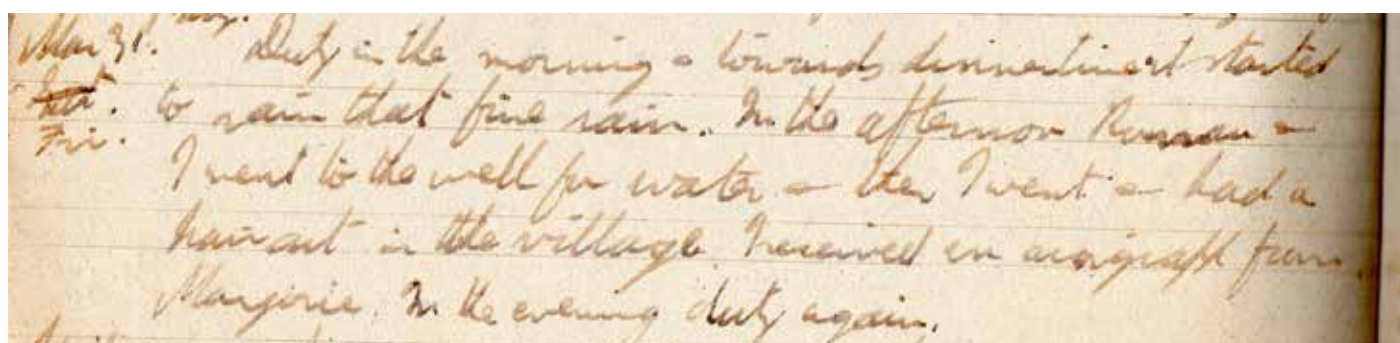 Mar 31. Duty in the morning & towards dinnertime it started
Sat. to rain that fine rain. In the afternoon Roman &
Fri. I went to the well for water & then I went & had a
haircut in the village. I received an airgraph from
Marjorie. In the evening duty again.